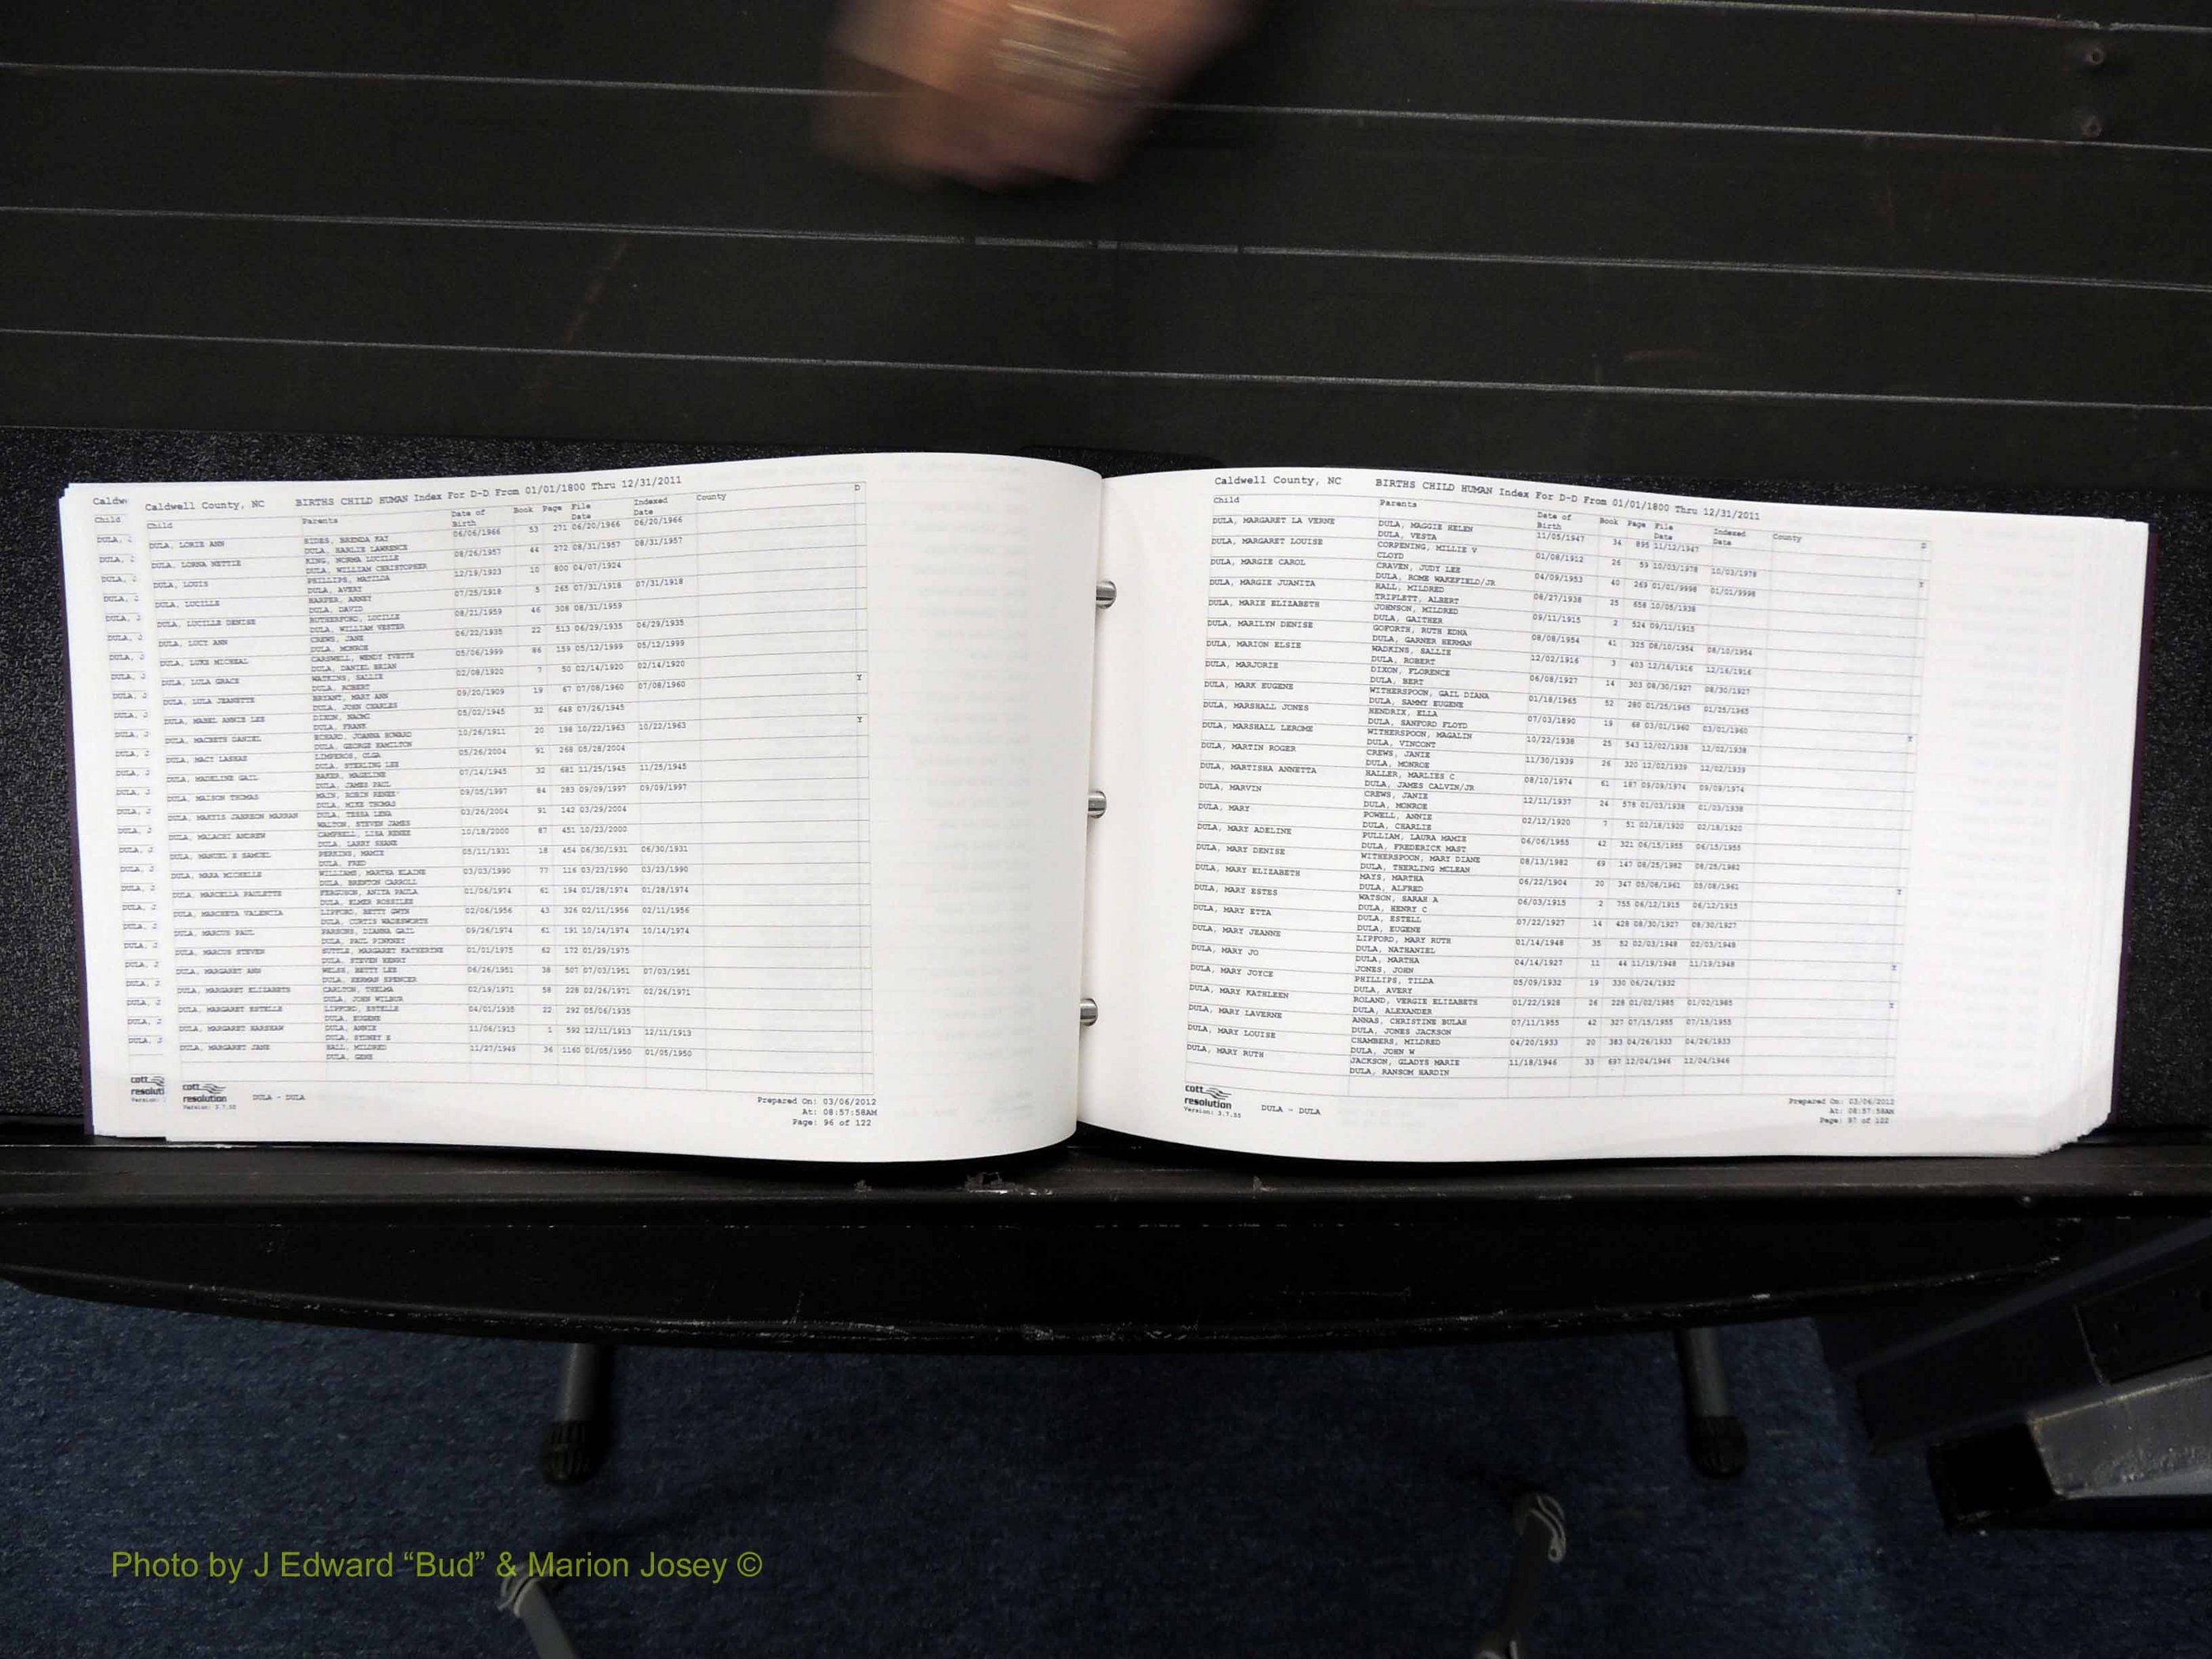 Caldw
Child
Caldwell County, NC BIRTHS CHILD HUMAN Index For D-D From 01/01/1800 Thru 12/31/2011
Child Parents Date of Birth Book Page File Date Indexed Date County D
DULA, LORIE ANN HIDES, BRENDA KAY 06/06/1966 53 271 06/20/1966 06/20/1966
DULA, HARLIE LAWRENCE
DULA, LORNA NETTIE KING, NORMA LUCILLE 08/26/1957 44 272 08/31/1957 08/31/1957
DULA, WILLIAM CHRISTOPHER
DULA, LOUIS PHILLIPS, MATILDA 12/18/1923 10 800 04/07/1924
DULA, AVERY
DULA, LUCILLE HARPER, ANNEY 07/25/1918 5 265 07/31/1918 07/31/1918
DULA, DAVID
DULA, LUCILLE DENISE RUTHERFORD, LUCILLE 08/21/1959 46 308 08/31/1959
DULA, WILLIAM VESTER
DULA, LUCY ANN CREWS, JANE 06/22/1935 22 513 06/29/1935 06/29/1935
DULA, MONROE
DULA, LUKE MICHEAL CARSWELL, WENDY YVETTE 05/06/1999 86 159 05/12/1999 05/12/1999
DULA, DANIEL BRIAN
DULA, LULA GRACE WATKINS, SALLIE 02/08/1920 7 50 02/14/1920 02/14/1920
DULA, ROBERT
DULA, LULA JEANETTE BRYANT, MARY ANN 09/20/1909 19 67 07/08/1960 07/08/1960 Y
DULA, JOHN CHARLES
DULA, MABEL ANNIE LEE DIXON, NAOMI 05/02/1945 32 648 07/26/1945
DULA, FRANK
DULA, MACBETH DANIEL ECHARD, JOANNA HOWARD 10/26/1911 20 198 10/22/1963 10/22/1963 Y
DULA, GEORGE HAMILTON
DULA, MACY LASHAE LIMPEROS, OLGA 05/26/2004 91 268 05/28/2004
DULA, STERLING LEE
DULA, MADELINE GAIL BAKER, MAGELINE 07/14/1945 32 681 11/25/1945 11/25/1945
DULA, JAMES PAUL
DULA, MAISON THOMAS MAIN, ROBIN RENEE 09/05/1997 84 283 09/09/1997 09/09/1997
DULA, MIKE THOMAS
DULA, TESSA LENA 03/26/2004 91 142 03/29/2004
WALTON, STEVEN JAMES
DULA, MALACHI ANDREW CAMPBELL, LISA RENEE 10/18/2000 87 451 10/23/2000
DULA, LARRY SHANE
DULA, MANUEL E SAMUEL PERKINS, MAMIE 05/11/1931 18 454 06/30/1931 06/30/1931
DULA, FRED
DULA, MARA MICHELLE WILLIAMS, MARTHA ELAINE 03/03/1990 77 116 03/23/1990 03/23/1990
DULA, BRENTON CARROLL
DULA, MARCELLA PAULETTE FERGUSON, ANITA PAULA 01/06/1974 61 194 01/28/1974 01/28/1974
DULA, ELMER ROSSILES
DULA, MARCHETA VALENCIA LIPFORD, BETTY GWYN 02/06/1956 43 326 02/11/1956 02/11/1956
DULA, CURTIS WADESWORTH
DULA, MARCUS PAUL PARSONS, DIANNA GAIL 09/26/1974 61 191 10/14/1974 10/14/1974
DULA, PAUL PINKNEY
DULA, MARCUS STEVEN SUTTLE, MARGARET KATHERINE 01/01/1975 62 172 01/29/1975
DULA, STEVEN HENRY
DULA, MARGARET ANN WELSH, BETTY LEE 06/26/1951 38 507 07/03/1951 07/03/1951
DULA, HERMAN SPENCER
DULA, MARGARET ELIZABETH CARLTON, THELMA 02/19/1971 58 228 02/26/1971 02/26/1971
DULA, JOHN WILBUR
DULA, MARGARET ESTELLE LIPFORD, ESTELLE 04/01/1935 22 292 05/06/1935
DULA, EUGENE
DULA, MARGARET HARSHAW DULA, ANNIE 11/06/1913 1 592 12/11/1913 12/11/1913
DULA, SYDNEY E
DULA, MARGARET JANE HALL, MILDRED 11/27/1949 36 1160 01/05/1950 01/05/1950
DULA, GENE
cott resolution
Version: 3.7.35
DULA - DULA
Prepared On: 03/06/2012
At: 08:57:58AM
Page: 96 of 122
Caldwell County, NC BIRTHS CHILD HUMAN Index For D-D From 01/01/1800 Thru 12/31/2011
Child Parents Date of Birth Book Page File Date Indexed Date County D
DULA, MARGARET LA VERNE DULA, MAGGIE HELEN 11/05/1947 34 895 11/12/1947
DULA, VESTA
DULA, MARGARET LOUISE CORPENING, MILLIE V 01/08/1912 26 59 10/03/1978 10/03/1978 Y
CLOYD
DULA, MARGIE CAROL CRAVEN, JUDY LEE 04/09/1953 40 269 01/01/9998 01/01/9998
DULA, ROME WAKEFIELD/JR
DULA, MARGIE JUANITA HALL, MILDRED 08/27/1938 25 658 10/05/1938
TRIPLETT, ALBERT
DULA, MARIE ELIZABETH JOHNSON, MILDRED 09/11/1915 2 524 09/11/1915
DULA, GAITHER
DULA, MARILYN DENISE GOFORTH, RUTH EDNA 08/08/1954 41 325 08/10/1954 08/10/1954
DULA, GARNER HERMAN
DULA, MARION ELSIE WADKINS, SALLIE 12/02/1916 3 403 12/16/1916 12/16/1916
DULA, ROBERT
DULA, MARJORIE DIXON, FLORENCE 06/08/1927 14 303 08/30/1927 08/30/1927
DULA, BERT
DULA, MARK EUGENE WITHERSPOON, GAIL DIANA 01/18/1965 52 280 01/25/1965 01/25/1965
DULA, SAMMY EUGENE
DULA, MARSHALL JONES HENDRIX, ELLA 07/03/1890 19 68 03/01/1960 03/01/1960 Y
DULA, SANFORD FLOYD
DULA, MARSHALL LEROME WITHERSPOON, MAGALIN 10/22/1938 25 543 12/02/1938 12/02/1938
DULA, VINCONT
DULA, MARTIN ROGER CREWS, JANIE 11/30/1939 26 320 12/02/1939 12/02/1939
DULA, MONROE
DULA, MARTISHA ANNETTA HALLER, MARLIES C 08/10/1974 61 187 09/09/1974 09/09/1974
DULA, JAMES CALVIN/JR
DULA, MARVIN CREWS, JANIE 12/11/1937 24 578 01/03/1938 01/03/1938
DULA, MONROE
DULA, MARY POWELL, ANNIE 02/12/1920 7 51 02/18/1920 02/18/1920
DULA, CHARLIE
DULA, MARY ADELINE PULLIAM, LAURA MAMIE 06/06/1955 42 321 06/15/1955 06/15/1955
DULA, FREDERICK MAST
DULA, MARY DENISE WITHERSPOON, MARY DIANE 08/13/1982 69 147 08/25/1982 08/25/1982
DULA, THERLING MCLEAN
DULA, MARY ELIZABETH MAYS, MARTHA 06/22/1904 20 347 05/08/1961 05/08/1961 Y
DULA, ALFRED
DULA, MARY ESTES WATSON, SARAH A 06/03/1915 2 755 06/12/1915 06/12/1915
DULA, HENRY C
DULA, MARY ETTA DULA, ESTELL 07/22/1927 14 428 08/30/1927 08/30/1927
DULA, EUGENE
DULA, MARY JEANNE LIPFORD, MARY RUTH 01/14/1948 35 52 02/03/1948 02/03/1948
DULA, NATHANIEL
DULA, MARY JO DULA, MARTHA 04/14/1927 11 44 11/19/1948 11/19/1948 Y
JONES, JOHN
DULA, MARY JOYCE PHILLIPS, TILDA 05/09/1932 19 330 06/24/1932
DULA, AVERY
DULA, MARY KATHLEEN ROLAND, VERGIE ELIZABETH 01/22/1928 26 228 01/02/1985 01/02/1985 Y
DULA, ALEXANDER
DULA, MARY LAVERNE ANNAS, CHRISTINE BULAH 07/11/1955 42 327 07/15/1955 07/15/1955
DULA, JONES JACKSON
DULA, MARY LOUISE CHAMBERS, MILDRED 04/20/1933 20 383 04/26/1933 04/26/1933
DULA, JOHN W
DULA, MARY RUTH JACKSON, GLADYS MARIE 11/18/1946 33 697 12/04/1946 12/04/1946
DULA, RANSOM HARDIN
cott resolution
Version: 3.7.35
DULA - DULA
Prepared On: 03/06/2012
At: 08:57:58AM
Page: 97 of 122
Photo by J Edward “Bud” & Marion Josey ©